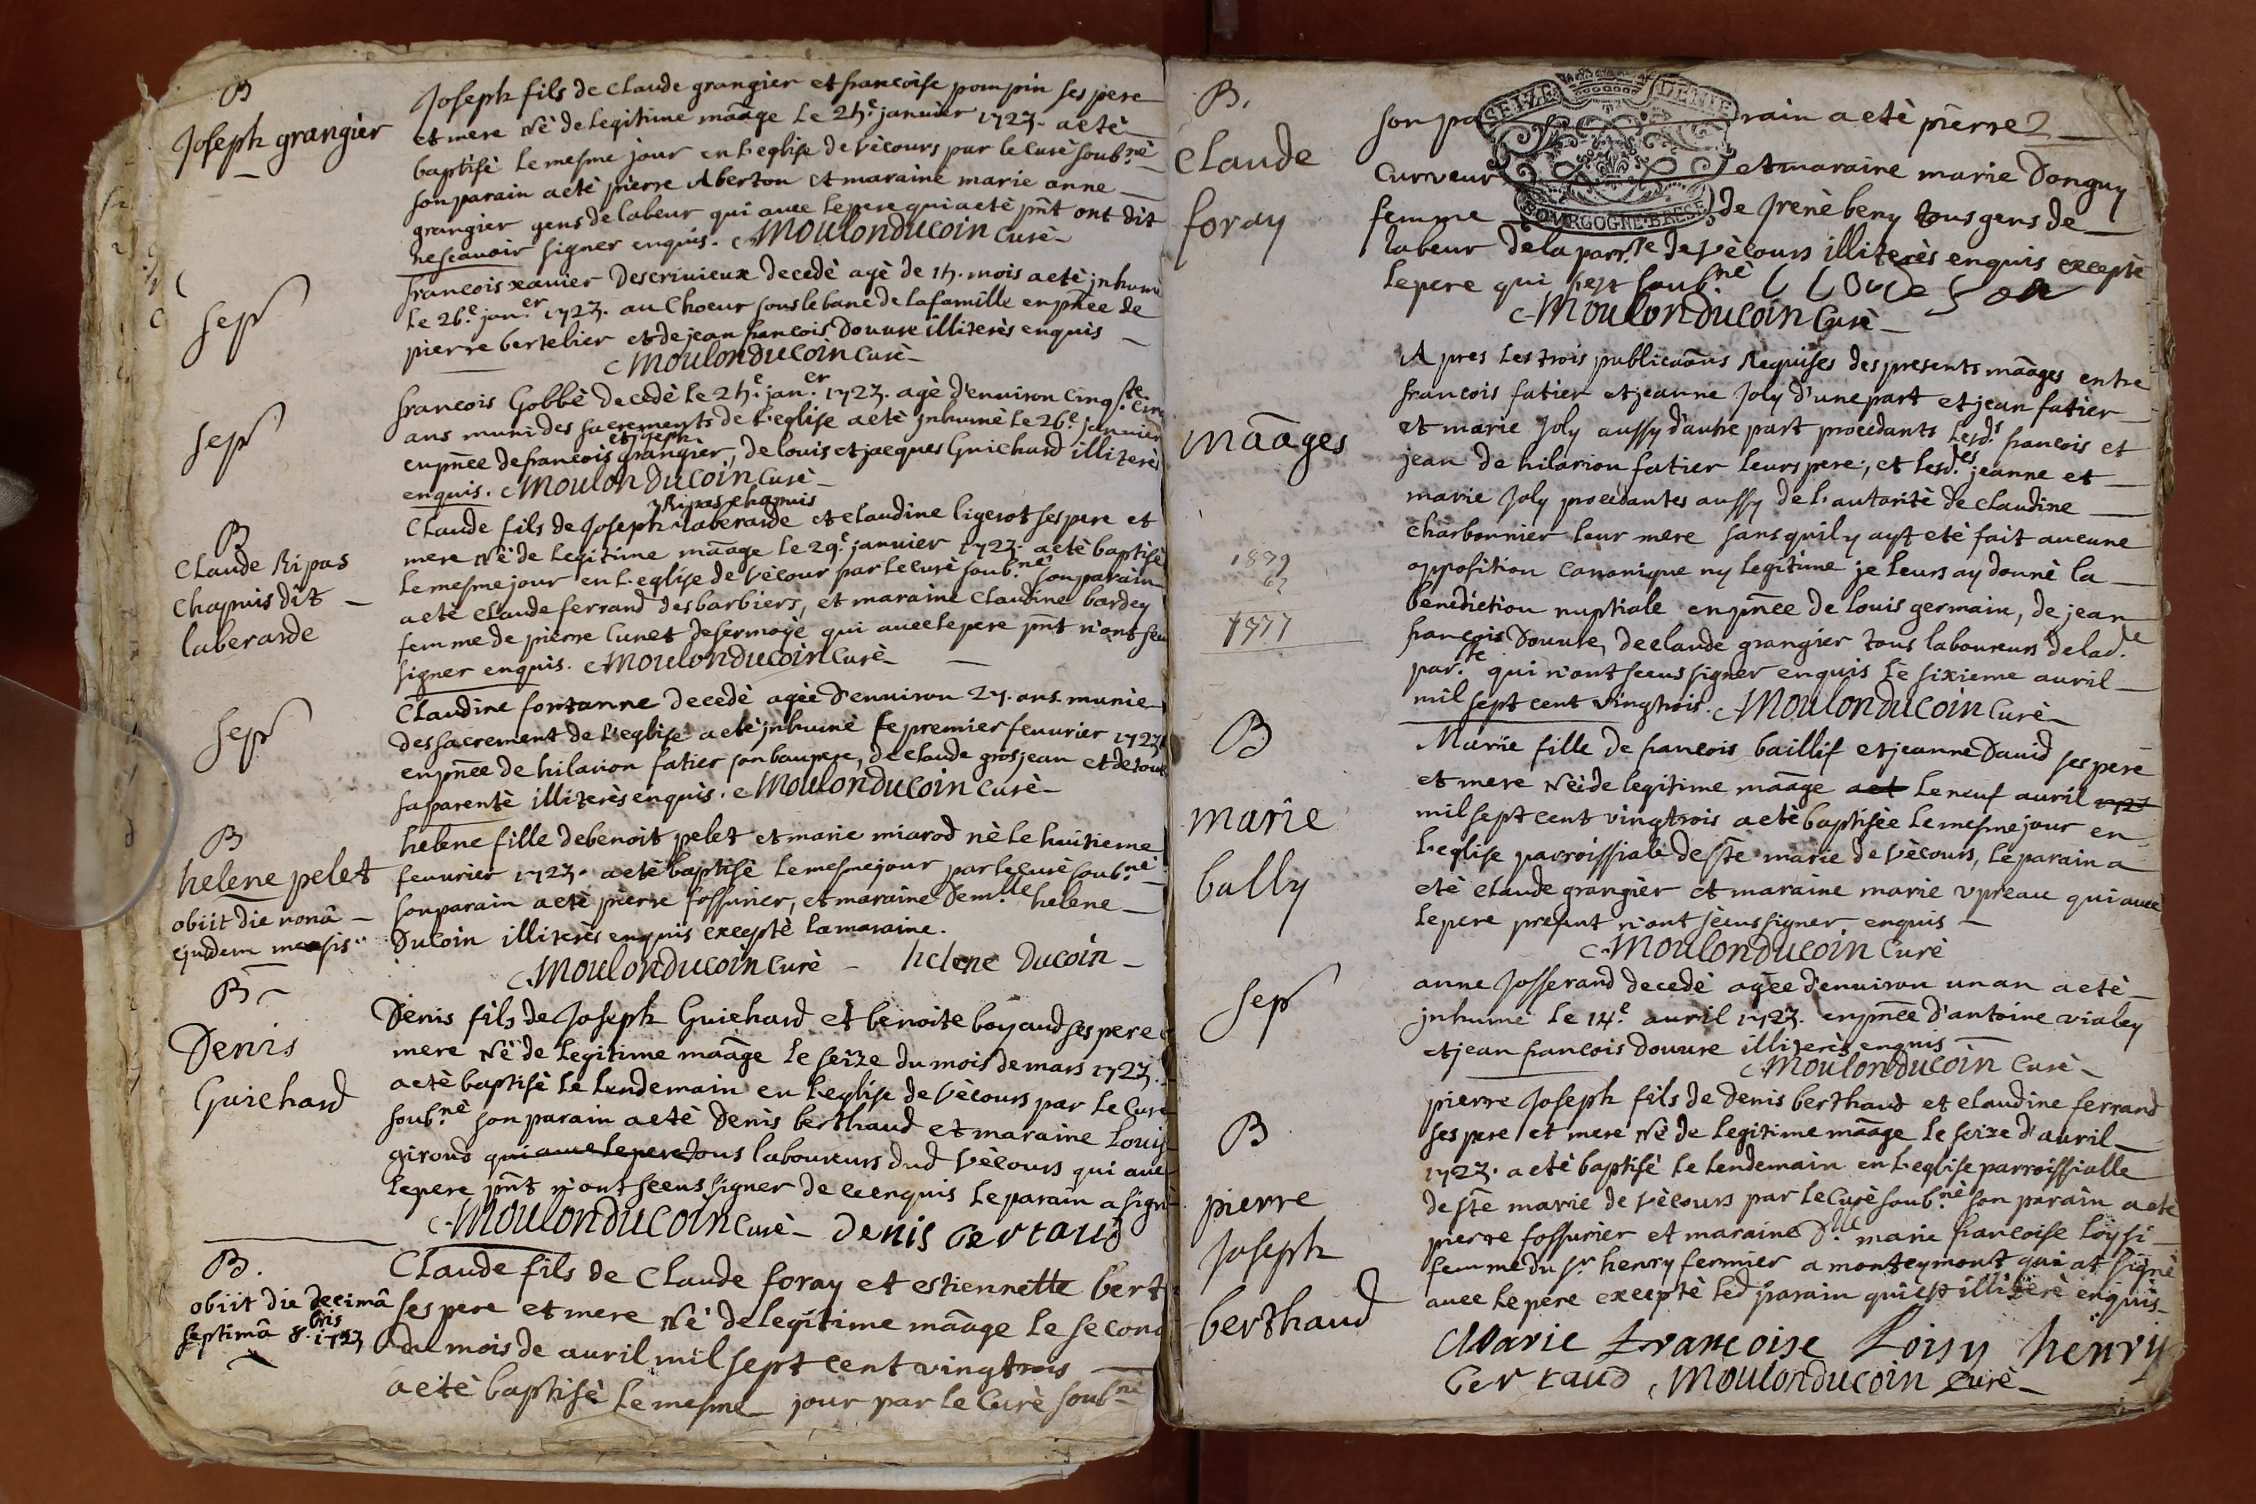 B
Joseph grangier
Joseph fils de Claude grangier et francoise pompin ses pere
et mere Né de legitime mãage Le 24e janvier 1723. a eté
baptisé Le mesme jour en L'eglise de Vécours par le Curé soub.né
son parain a eté pierre Aberton et maraine marie anne
grangier gens de labeur qui avec Le pere qui a eté pñt ont dit
ne scavoir signer enquis. Moulonducoin Curé
sep
francois xavier Descrivieux decedé agé de 14. mois a eté jnhumé
Le 26.e jan.er 1723. au Choeur sous le banc de la famille en pñce de
pierre bertelier et de jean francois Douvre illiterés enquis
Moulonducoin Curé
sep
francois Gobbé decedé Le 24.e jan.er 1723. agé d'environ cinq.te cinq
ans muni des sacrements de L'eglise a eté jnhumé Le 26.e janvier
et joseph
en pñce de francois grangier, de louis et jacques Guichard illiterés
enquis. Moulonducoin Curé
B
Claude Ripas
Chapuis dit
laberarde
Ripas chapuis
Claude fils de Joseph laberarde et Claudine ligerot ses pere et
mere Né de Legitime mãage Le 29.e janvier 1723. a eté baptisé
Le mesme jour en L'eglise de Vécour par Le Curé soub.né son parain
a eté Claude ferrand des barbiers, et maraine Claudine bardey
femme de pierre Cunet de sermoyé qui avec Le pere pñt n'ont sçeu
signer enquis. Moulonducoin Curé
sep
Claudine fontanne decedé agée d'environ 27. ans munie
des sacrement de L'eglise a eté jnhumé Le premier fevvrier 1723
en pñce de hilarion fatier son baupere, de Claude grosjean et de toute
sa parenté illiterés enquis. Moulonducoin Curé
B
helene pelet
obiit die nonâ
ejusdem mensis
helene fille de benoit pelet et marie miarod né Le huitieme
fevvrier 1723. a eté baptisé Le mesme jour par Le Curé soub.né
son parain a eté pierre fossurier, et maraine Dem.lle helene
Ducoin illiterés enquis excepté La maraine.
Moulonducoin Curé helene Ducoin
B
Denis
Guichard
Denis fils de Joseph Guichard et benoite boyaud ses pere et
mere Né de Legitime mãage Le seize du mois de mars 1723.
a eté baptisé Le Lendemain en L'eglise de Vécours par Le Curé
soub.né son parain a eté Denis berthaud et maraine Louise
giroud qui avec le pere tous laboureurs dud Vécours qui avec
Le pere pñt n'ont sceus signer de ce enquis Le parain a signé
Moulonducoin Curé Denis bertaud
B.
obiit die decimâ
septimâ 8.bris 1723
Claude fils de Claude foray et estiennette bert
ses pere et mere Né de legitime mãage Le second
du mois de avril mil sept cent vingtrois
a eté baptisé Le mesme jour par Le Curé soub.né
B.
Claude
foray
SEIZE DENIE
BOVRGOGNE BRESSE
son parain a eté pierre
Curveur et maraine marie Donguy
femme de Jrené beny tous gens de
labeur de la parr.se de Vécours illiterés enquis excepté
Le pere qui s'est soub.né
Moulonducoin Curé
mãages
1839
62
1777
Apres Les trois publicaõns Requises des presents mãages entre
francois fatier et jeanne Joly d'une part et jean fatier
et marie Joly aussy d'autre part procedants Lesd.s francois et
jean de hilarion fatier leurs pere, et lesd.es jeanne et
marie Joly procedantes aussy de L'autorité de Claudine
Charbonnier leur mere sans quil y ayt eté fait aucune
opposition Canonique ny Legitime je Leurs ay donné la
benediction nuptiale en pñce de louis germain, de jean
francois Douvre, de Claude grangier tous laboureurs de lad.e
par.sse qui n'ont sceus signer enquis Le sixieme avril
mil sept cent vingtrois. Moulonducoin Curé
B
marie
bally
Marie fille de francois baillif et jeanne David ses pere
et mere Née de legitime mãage aet Le neuf avril 1723
mil sept cent vingtrois a eté baptisée Le mesme jour en
L'eglise parroissiale de ste marie de Vécours, Le parain a
eté Claude grangier et maraine marie vpreau qui avec
Le pere present n'ont sceus signer enquis
Moulonducoin Curé
sep
anne Josserand decedé agée d'environ un an a eté
jnhumé Le 14.e avril 1723. en pñce d'antoine vialey
et jean francois Douvre illiterés enquis
Moulonducoin Curé
B
pierre
Joseph
berthaud
pierre Joseph fils de Denis berthaud et Claudine ferrand
ses pere et mere Né de legitime mãage Le seize d'avril
1723. a eté baptisé Le Lendemain en L'eglise parroissialle
de ste marie de Vécours par Le Curé soub.né son parain a eté
pierre fossurier et maraine D.lle marie francoise Loysi
femme du sr henry fermier a monteymont qui at signé
avec Le pere excepté Led parain qui est illiteré enquis
Marie francoise Loisy henry
bertaud Moulonducoin Curé